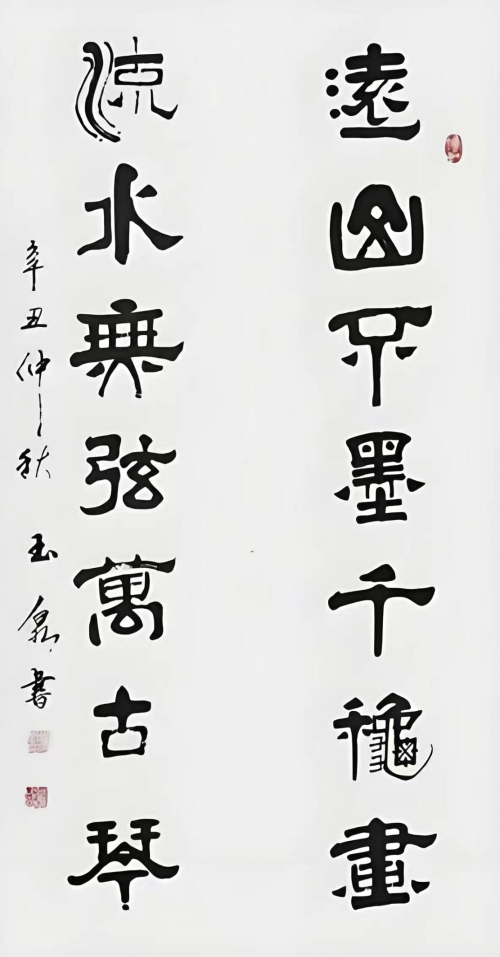 遠山不墨千龝畫
流水無弦萬古琴
辛丑仲秋 玉泉書